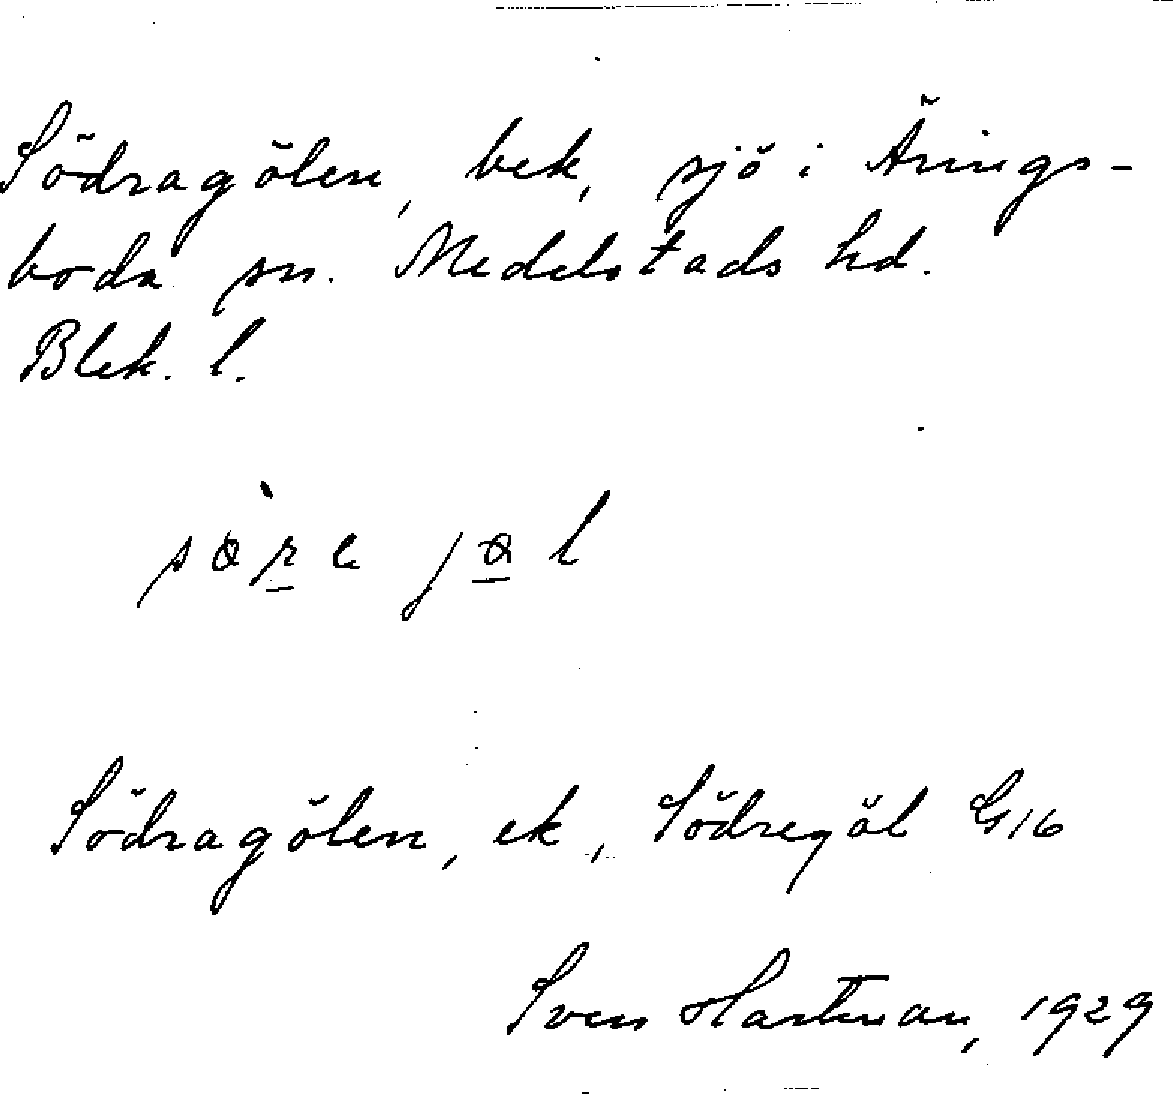 Södragölen, bek, sjö i Årings-
boda sn. Medelstads hd.
Blek. l.
Södragölen, ek, Södregöl G16
Sven Hartman, 1929